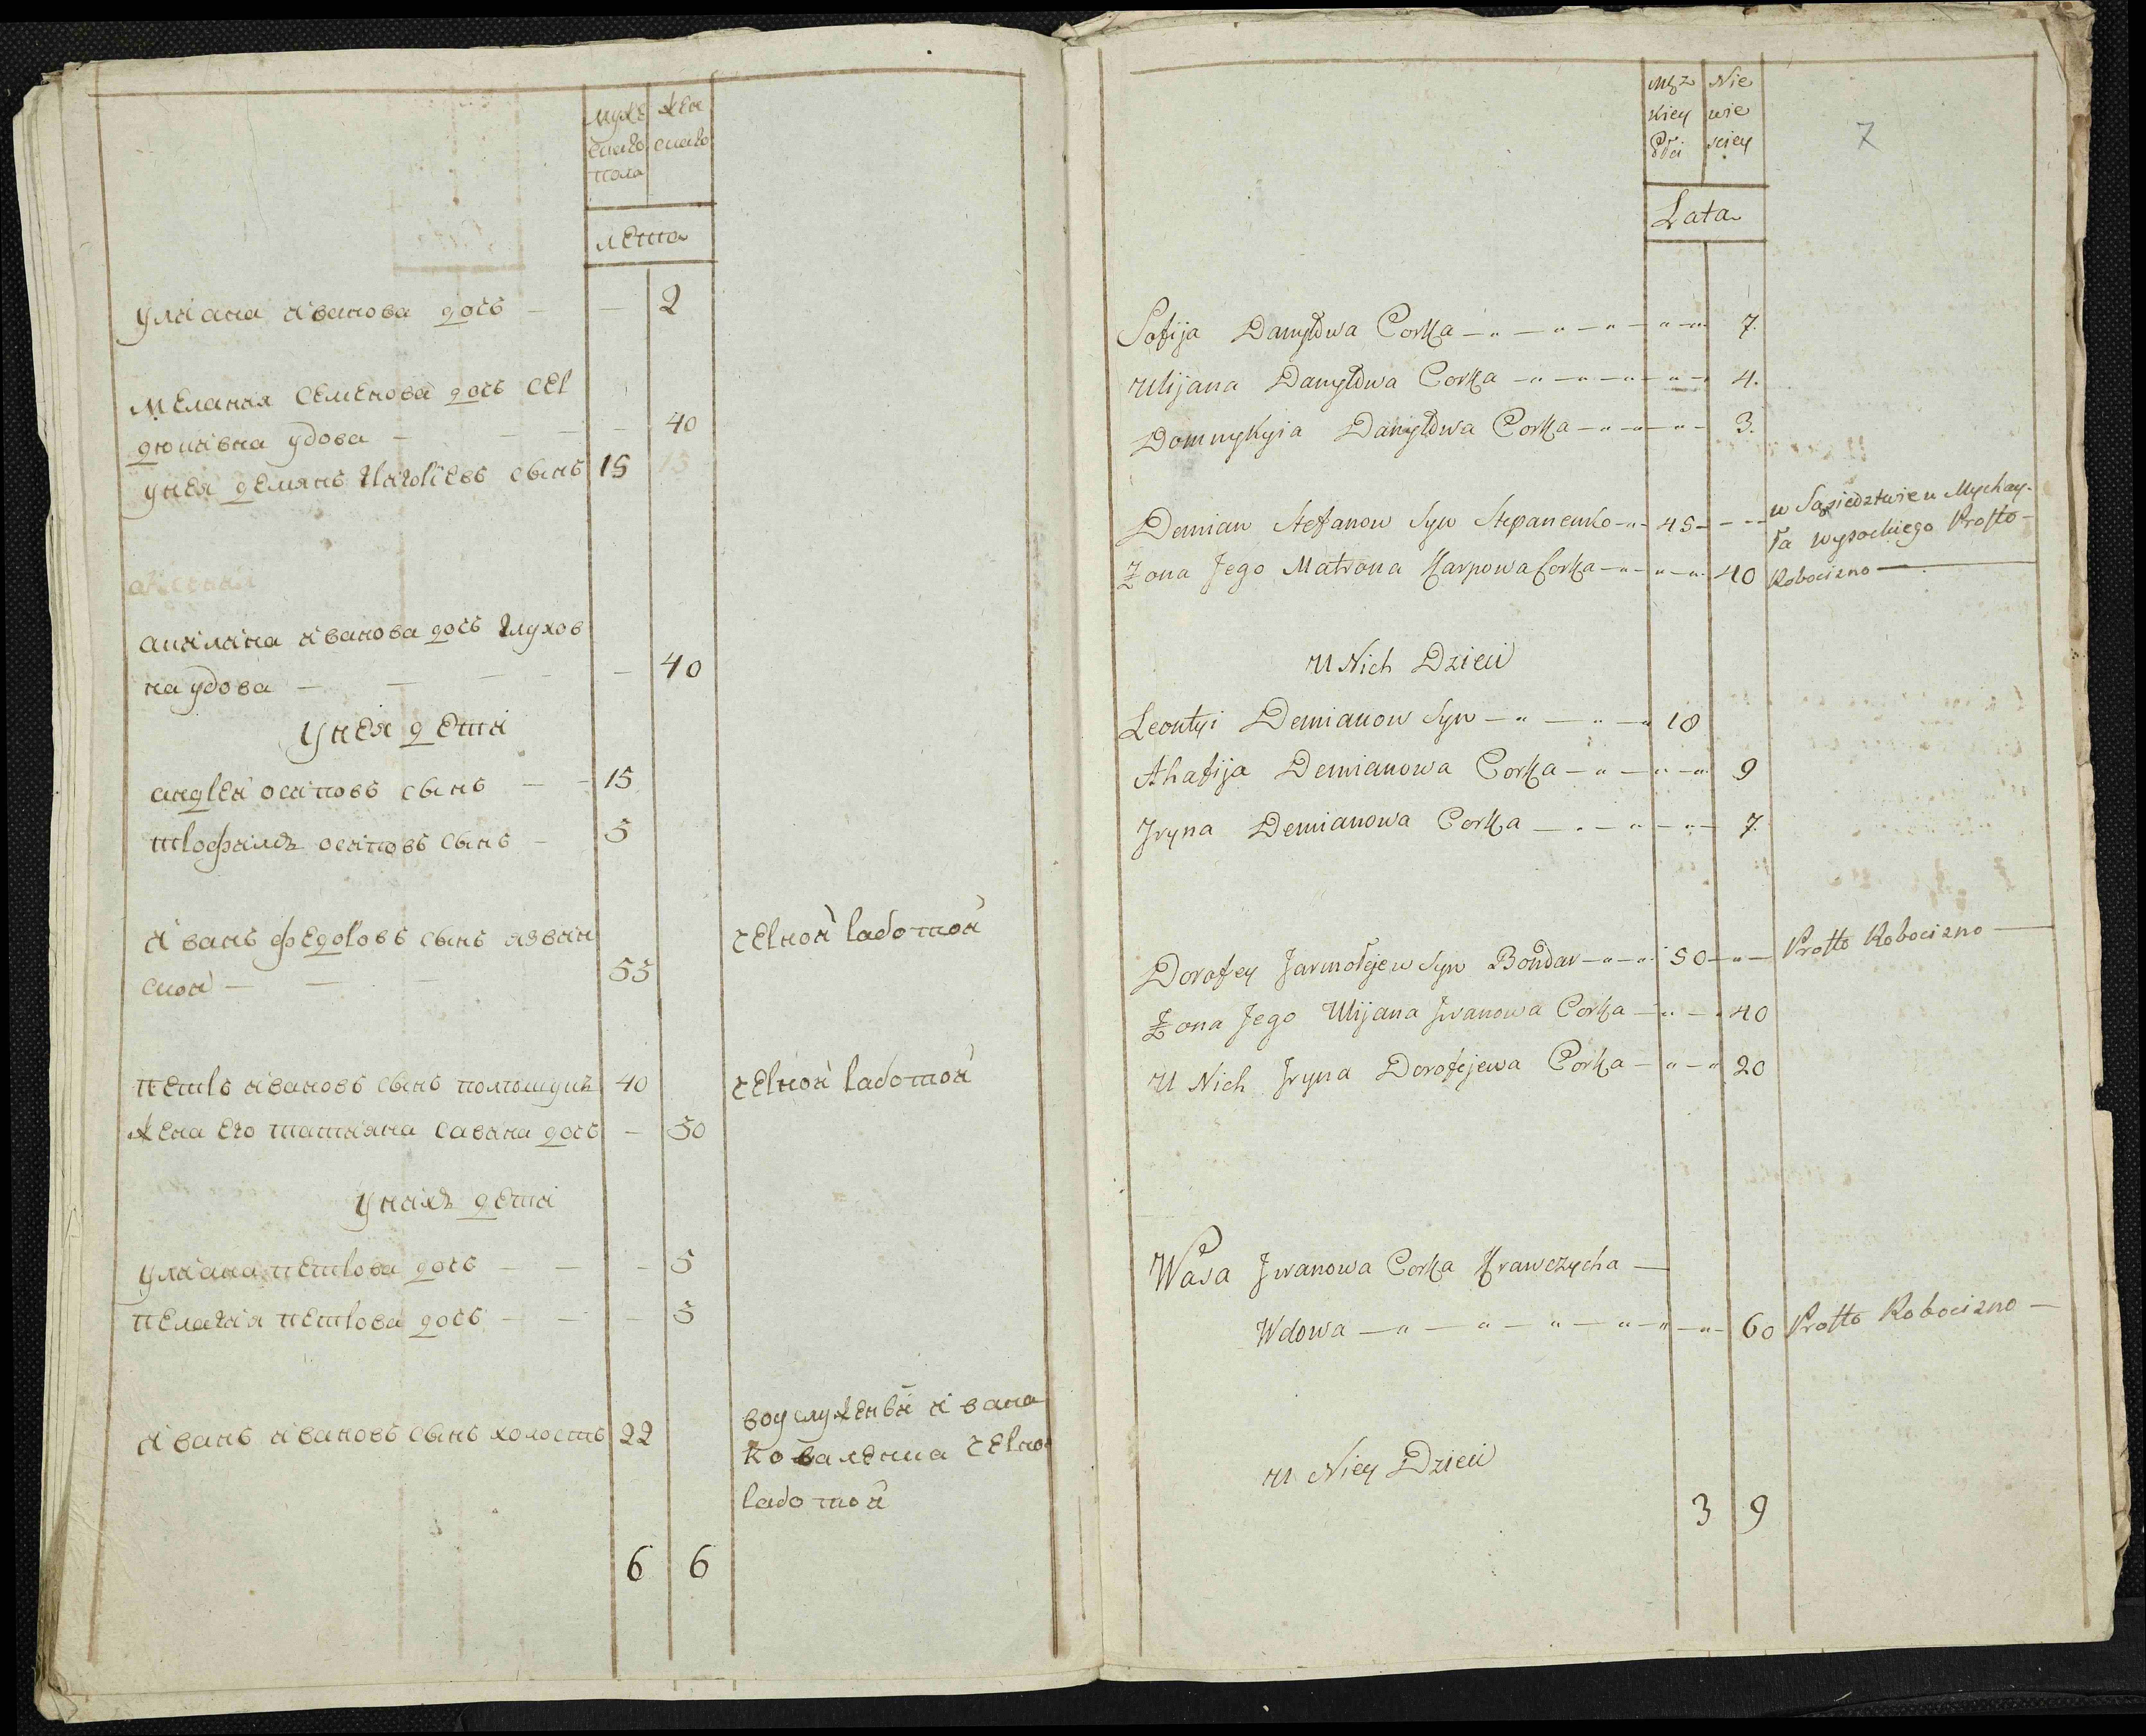 муже жен
скаго скаго
пола
лета
уліана іванова дочь — — 2
меланія семенова дочь сер
дюківна удова — — — — 40
унея демянъ григориевъ сынъ 15
акилина іванова дочь глухов
на удова — — — — 40
унея дети
андрей осиповъ сынъ — — 15
трофимъ осиповъ сынъ — 5
іванъ федоровъ сынъ язвин
ской — — — 55 черной работой
петръ івановъ сынъ полтощукъ 40 черной работой
жена его татіяна савина дочь — 30
унихъ дети
уліана петрова дочь — — — 5
пелагія петрова дочь — — — 5
іванъ івановъ сынъ холостъ 22
воуслуженіи івана
коваленка черно
работой
6 6
Męz Nie
kiey wie
Płci sciey
7
Lata
Sofija Danyłowa Corka — " — " — " — " — " 7.
Ulijana Danyłowa Corka — " — " — " — 4.
Domnykyia Danyłowa Corka — " — " — " — 3.
Demian Stefanow Syn Stepanenko — " — 45 — — — w Sąsiedztwie u Mychay-
ła wysockiego Prosto-
Zona Jego Matrona Karpowa Corka — " — " — " 40 Robocizno —
U Nich Dzieci
Leontyi Demianow Syn — " — " — " 18
Ahafija Demianowa Corka — " — " — " 9
Jryna Demianowa Corka — " — " — " — 7.
Dorofey Jarmołejew Syn Bondar — " — " 50 — " — Prosto Robocizno —
Zona Jego Ulijana Jwanowa Corka — " — " 40
U Nich Jryna Dorofejewa Corka — " — " 20
Wasa Jwanowa Corka Krawczycha —
Wdowa — " — " — " — " — " — " — 60 Prosto Robocizno —
U Niey Dzieci
3 9